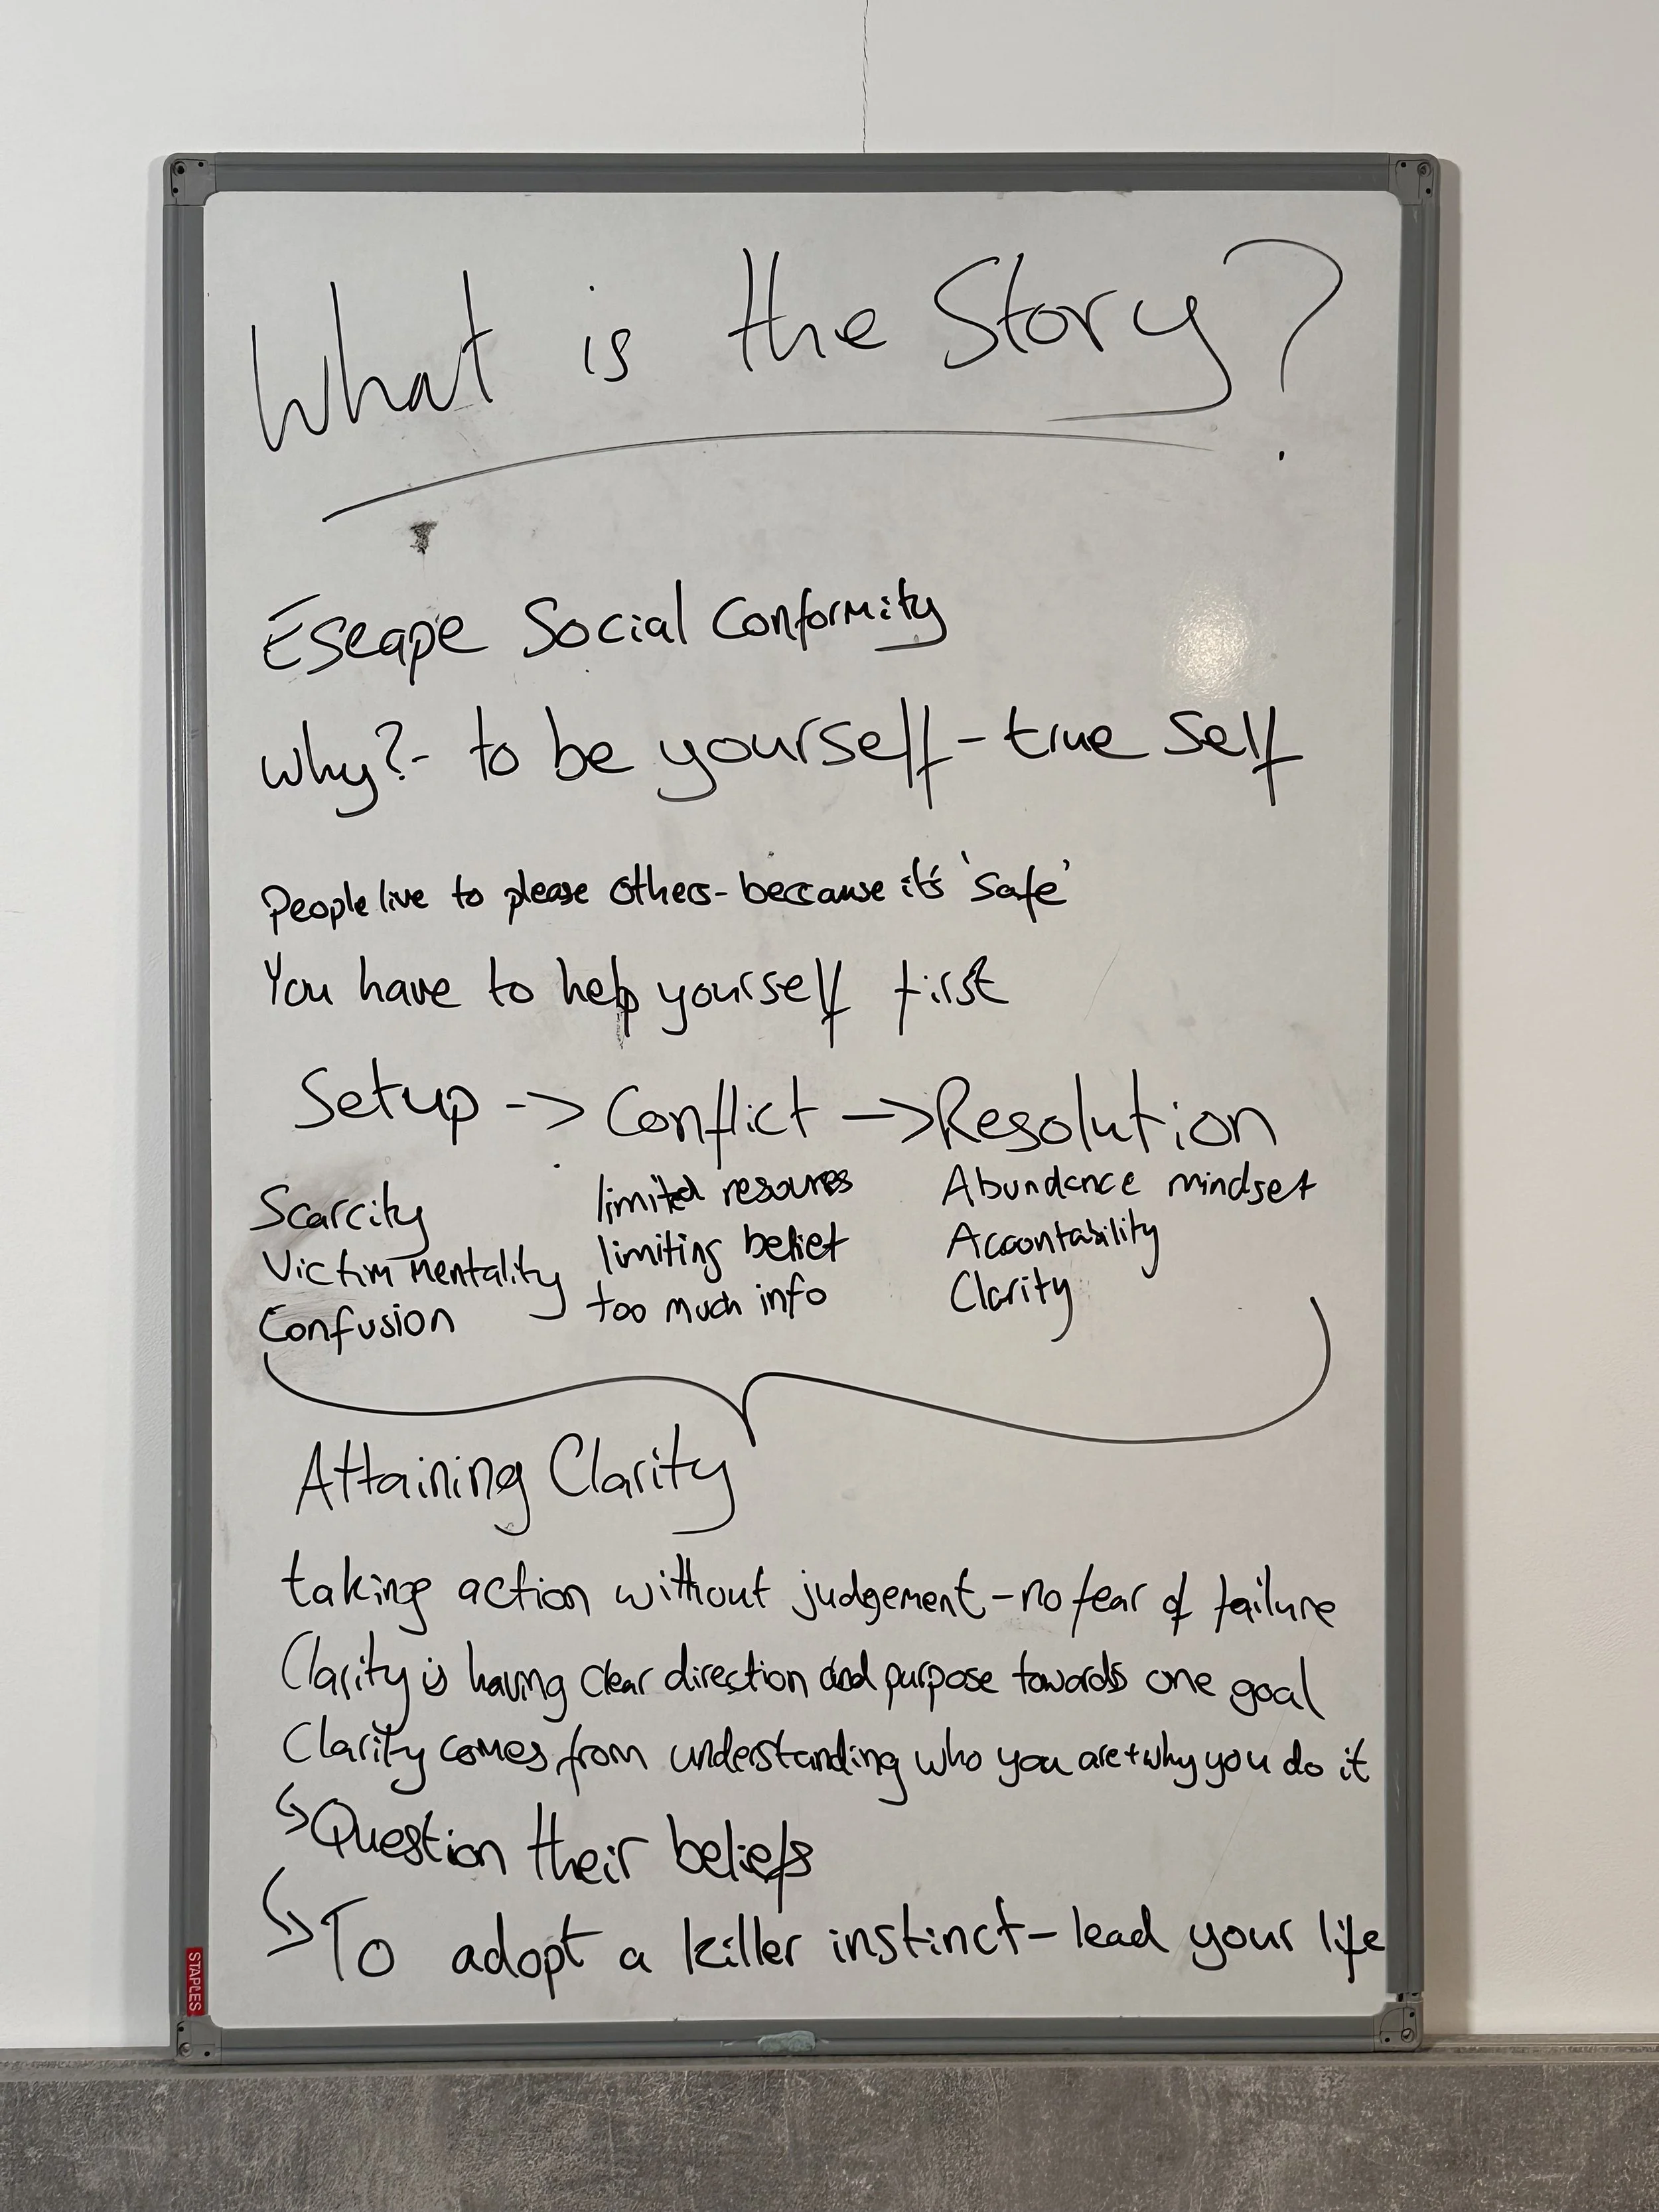 What is the Story?
Escape Social Conformity
why?- to be yourself - true self
People live to please others - beccause it's 'safe'
You have to help yourself first
Setup -> Conflict -> Resolution
Scarcity limited resoures Abundance mindset
Victim mentality limiting belief Accountability
Confusion too much info Clarity
Attaining Clarity
taking action without judgement - no fear of failure
Clarity is having clear direction and purpose towards one goal
Clarity comes from understanding who you are + why you do it
↳ Question their beliefs
↳ To adopt a killer instinct - lead your life
STAPLES